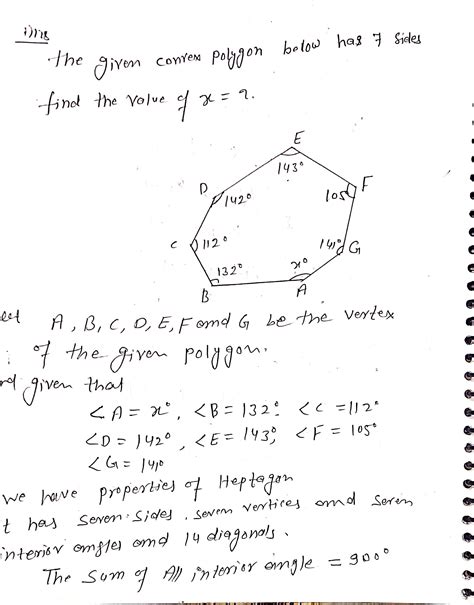 the given convex polygon below has 7 sides
find the value of x = ?.
E
143°
D
142°
F
105
C
112°
141°
G
132°
x°
B
A
let A, B, C, D, E, F and G be the vertex
of the given polygon.
given that
∠A = x°, ∠B = 132° ∠C = 112°
∠D = 142°, ∠E = 143°, ∠F = 105°
∠G = 141°
we have properties of Heptagon
t has seven sides, seven vertices and seven
interior angles and 14 diagonals.
The sum of All interior angle = 900°